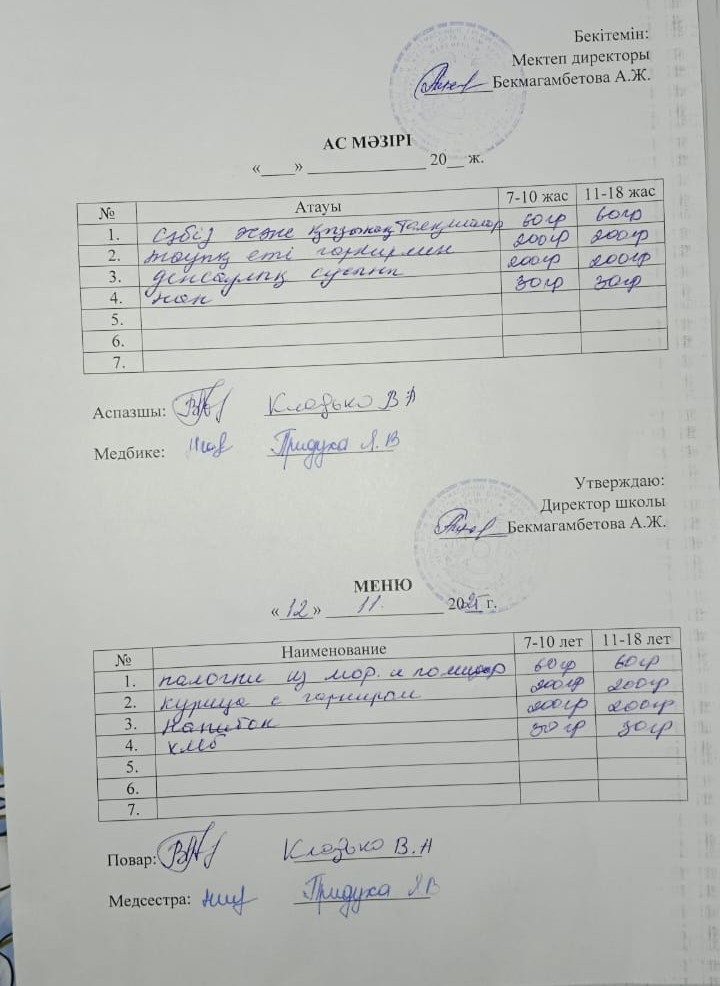 Бекітемін:
Мектеп директоры
Бекмагамбетова А.Ж.
АС МӘЗІРІ
«____» ______________ 20__ ж.
№ Атауы 7-10 жас 11-18 жас
1. сәбіз және қызанақ таяқшалар 60гр 60гр
2. тауық еті гарнирмен 200гр 200гр
3. денсаулық сусыны 200гр 200гр
4. нан 30гр 30гр
5.
6.
7.
Аспазшы: Клозько В А
Медбике: Придуха Я.В
Утверждаю:
Директор школы
Бекмагамбетова А.Ж.
МЕНЮ
«12» 11. 2025 г.
№ Наименование 7-10 лет 11-18 лет
1. палочки из мор. и помидор 60гр 60гр
2. курица с гарниром 200гр 200гр
3. напиток 200гр 200гр
4. хлеб 30гр 30гр
5.
6.
7.
Повар: Клозько В.А
Медсестра: Придуха Я В